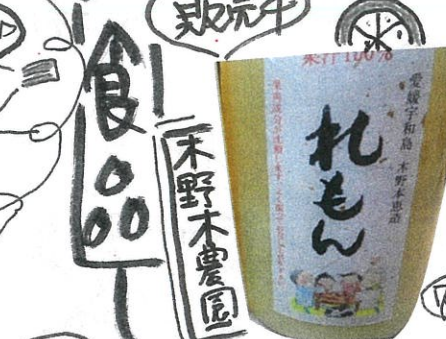 販売中
食品
木野木農園
果汁100%
愛媛宇和島 木野本恵造
れもん